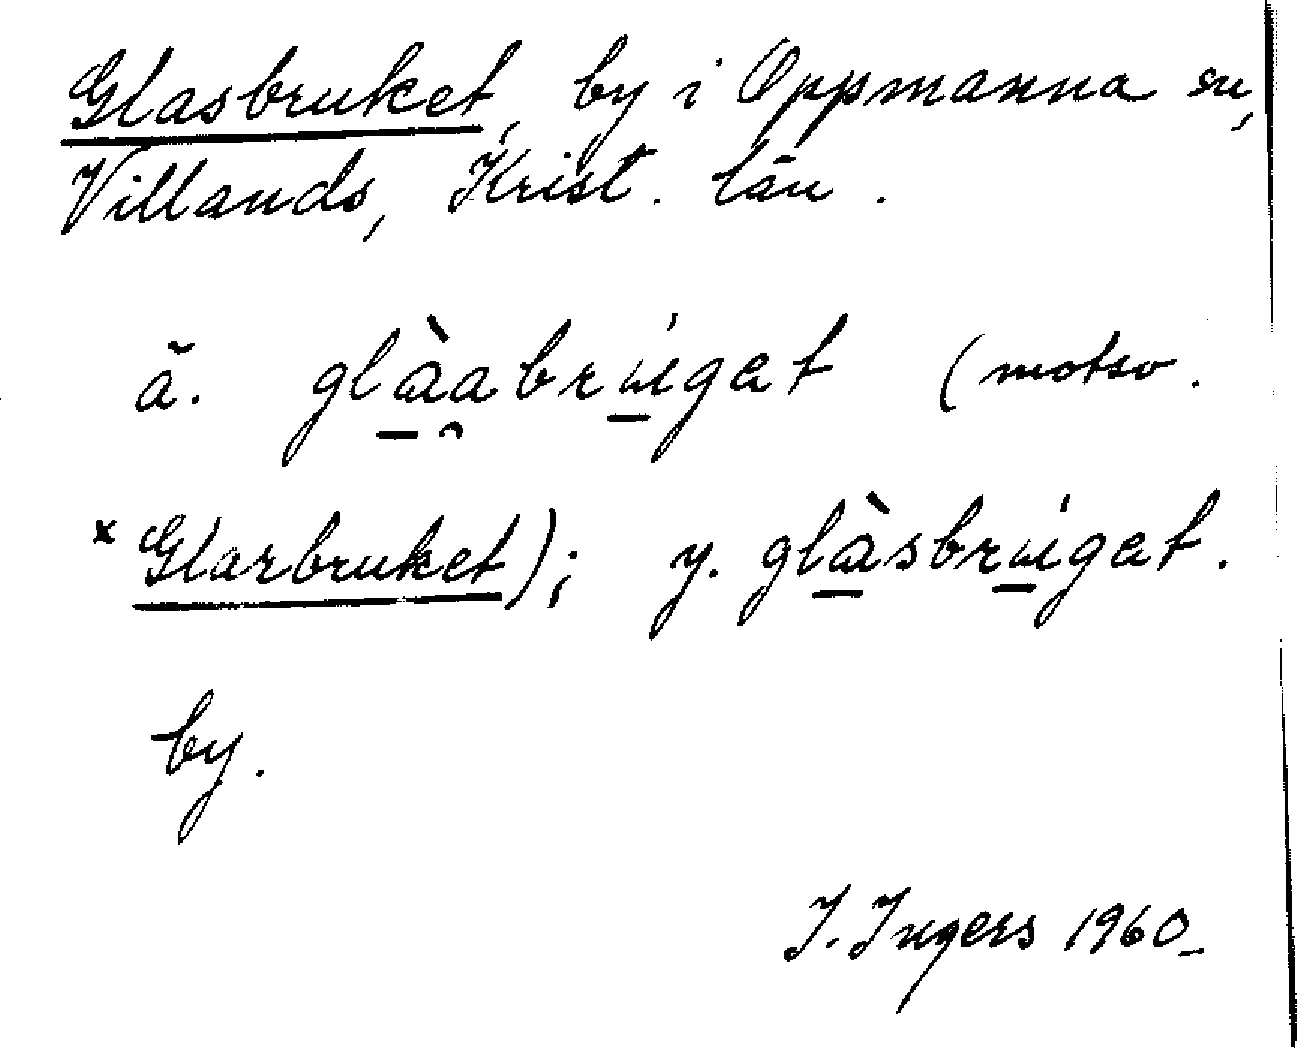 Glasbruket, by i Oppmanna sn,
Villands, Krist. län.
ä. glàabrúgat (motsv.
*Glarbruket); y. glàsbrúgat.
by.
I. Ingers 1960